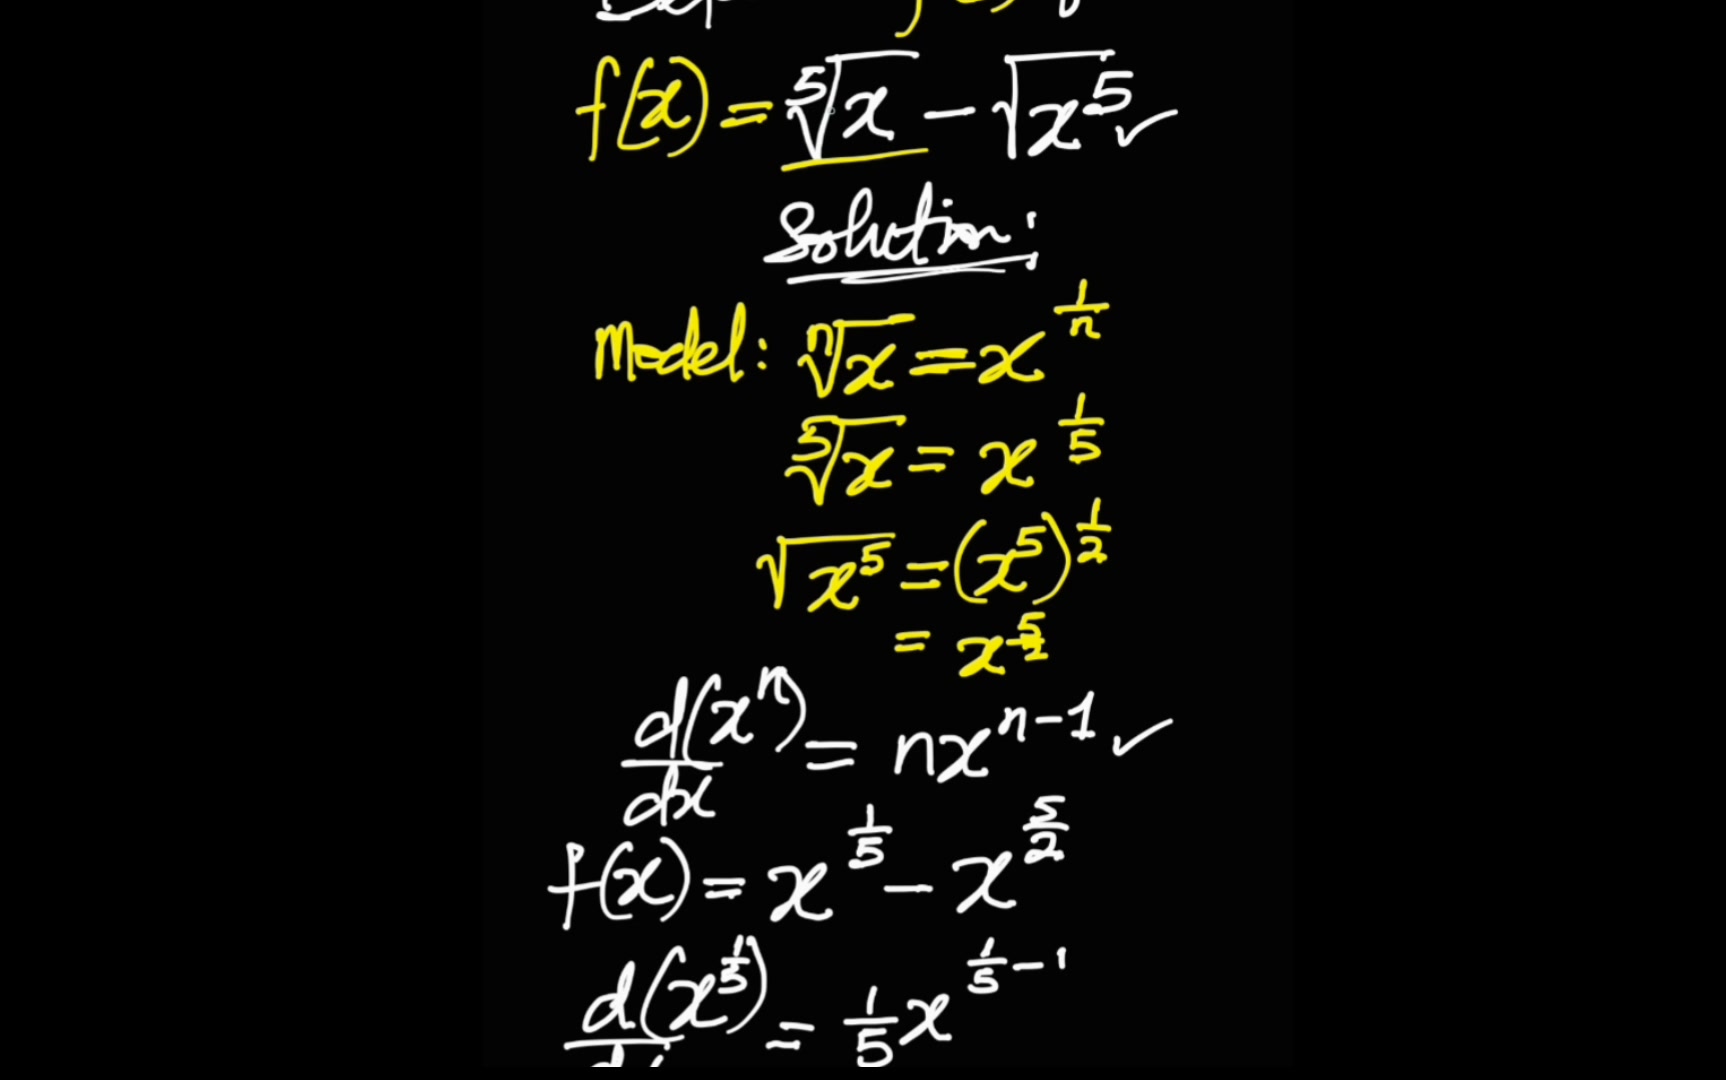 f(x) = ⁵√x − √x⁵ ✓
Solution:
Model: ⁿ√x = x^(1/n)
⁵√x = x^(1/5)
√x⁵ = (x⁵)^(1/2)
= x^(5/2)
d(xⁿ)/dx = nx^(n−1) ✓
f(x) = x^(1/5) − x^(5/2)
d(x^(1/5)) = 1/5 x^(1/5 − 1)